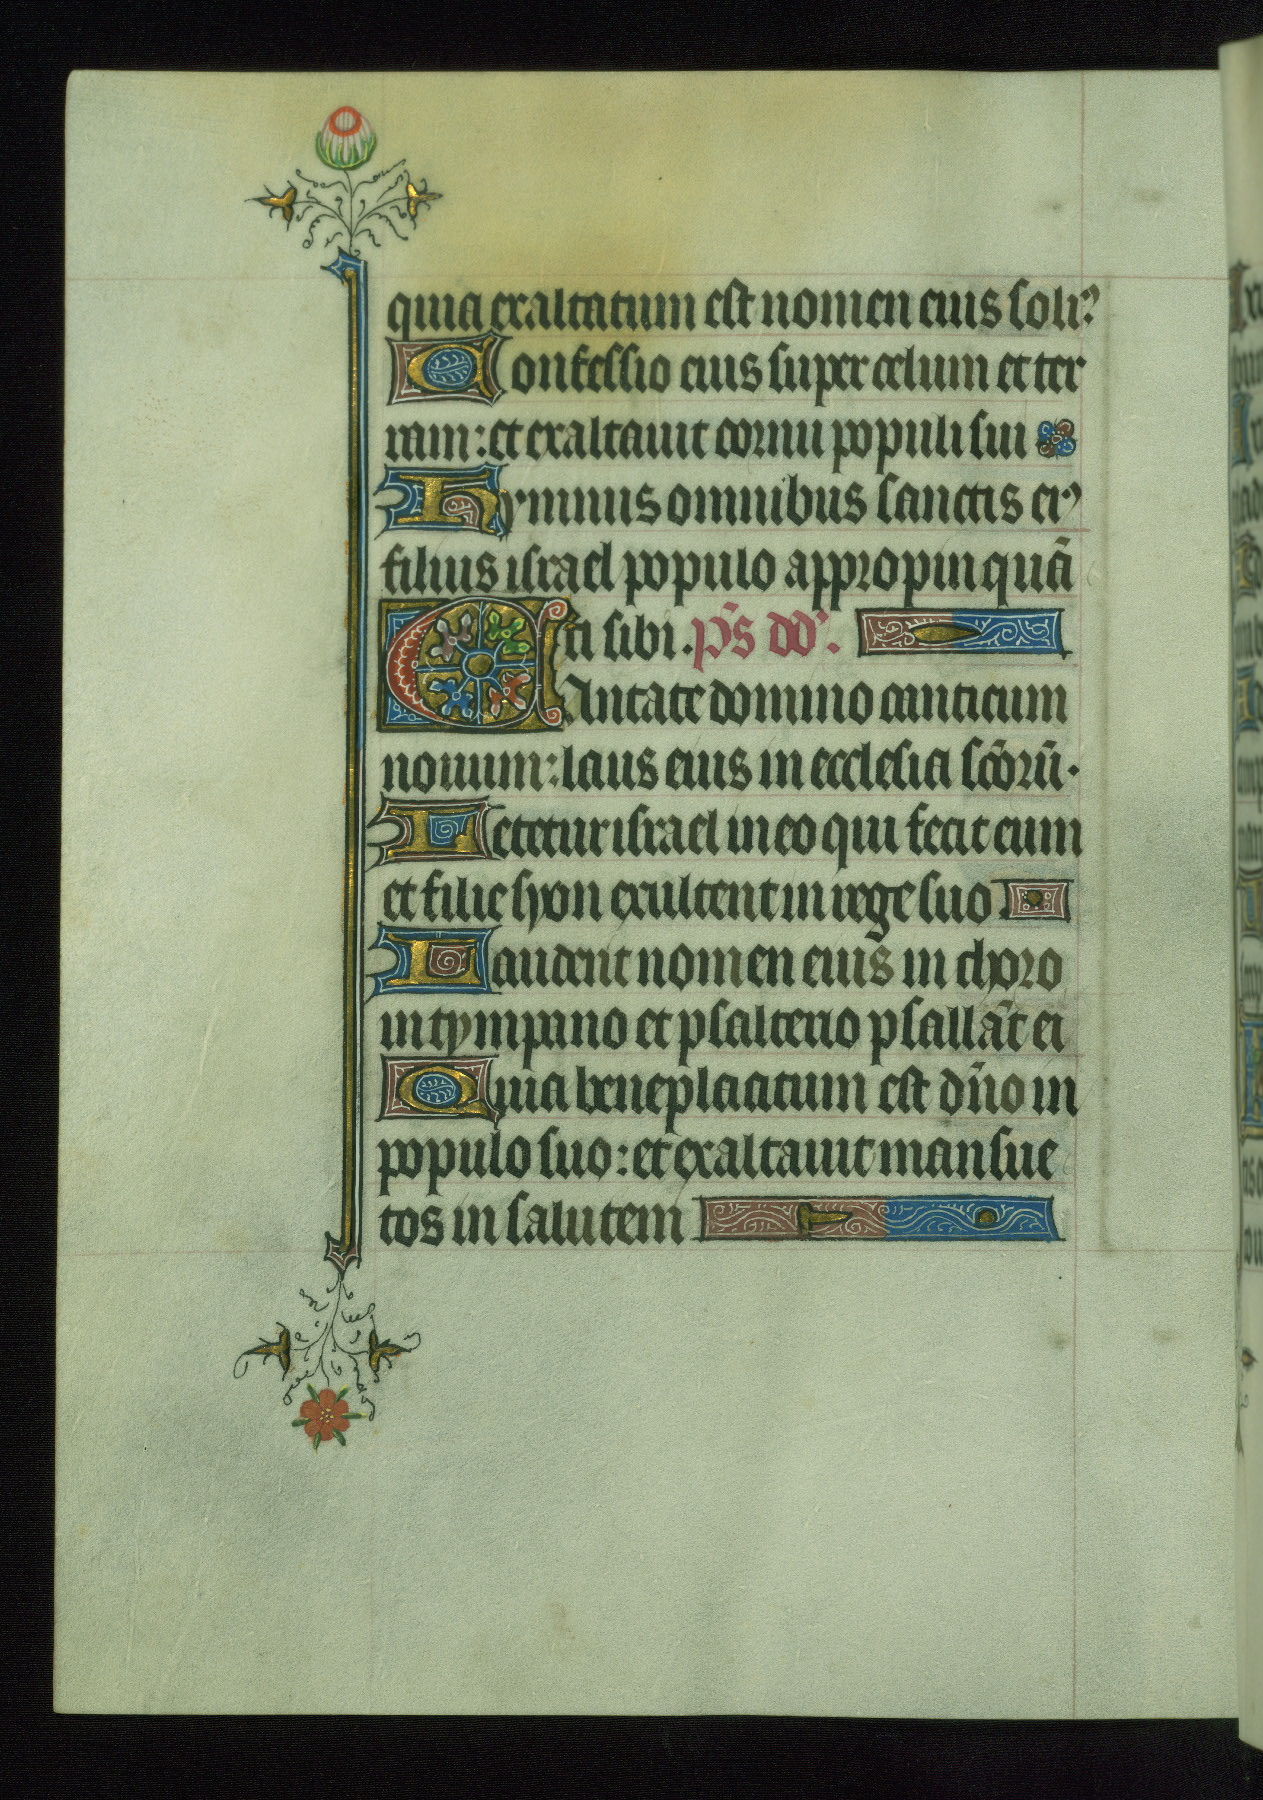 quia exaltatum est nomen eius soli⁹
Confessio eius super celum et ter
ram: et exaltauit cornu populi sui
Hymnus omnibus sanctis ei⁹
filiis israel populo appropinquā
ti sibi. p̄s dd'.
CAntate domino canticum
nouum: laus eius in ecclesia sc̄orū.
Letetur israel in eo qui fecit eum
et filie syon exultent in rege suo
Laudent nomen eius in choro
in tympano et psalterio psallāt ei
Quia beneplacitum est dn̄o in
populo suo: et exaltauit mansue
tos in salutem